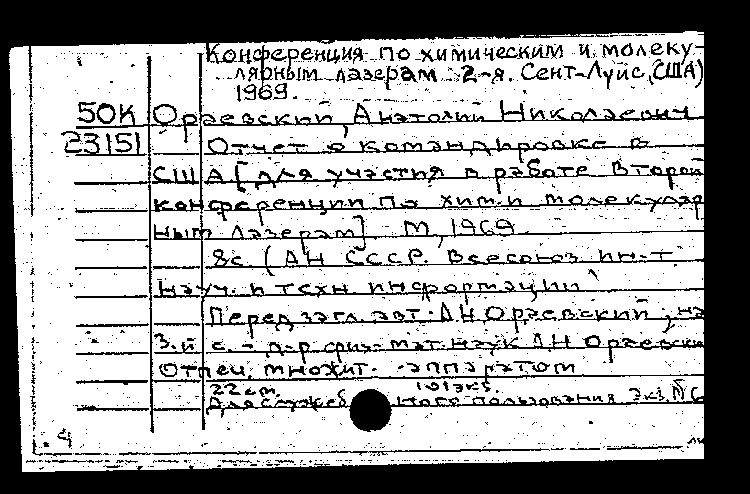 Конференция по химическим и молеку-
лярным лазерам 2-я. Сент-Луис, (США)
1969.
50К Ораевский, Анатолий Николаевич
23151 Отчет о командировке в
США [для участия в работе Второй
конференции по хим. и молекуляр
ным лазерам]. М, 1969
8с (АН СССР. Всесоюз. ин-т
науч. и техн. информации)
Перед загл. авт. АН Ораевский, на
3-й с. - д-р физ-мат. наук АН Ораевски
Отпеч. множит. аппаратом
22 см. 101 экз.
Для служеб ного пользования Экз. №